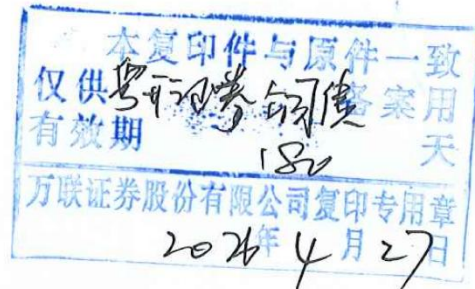 本复印件与原件一致
仅供粤开证券公司债备案用
有效期180天
万联证券股份有限公司复印专用章
2026年4月27日